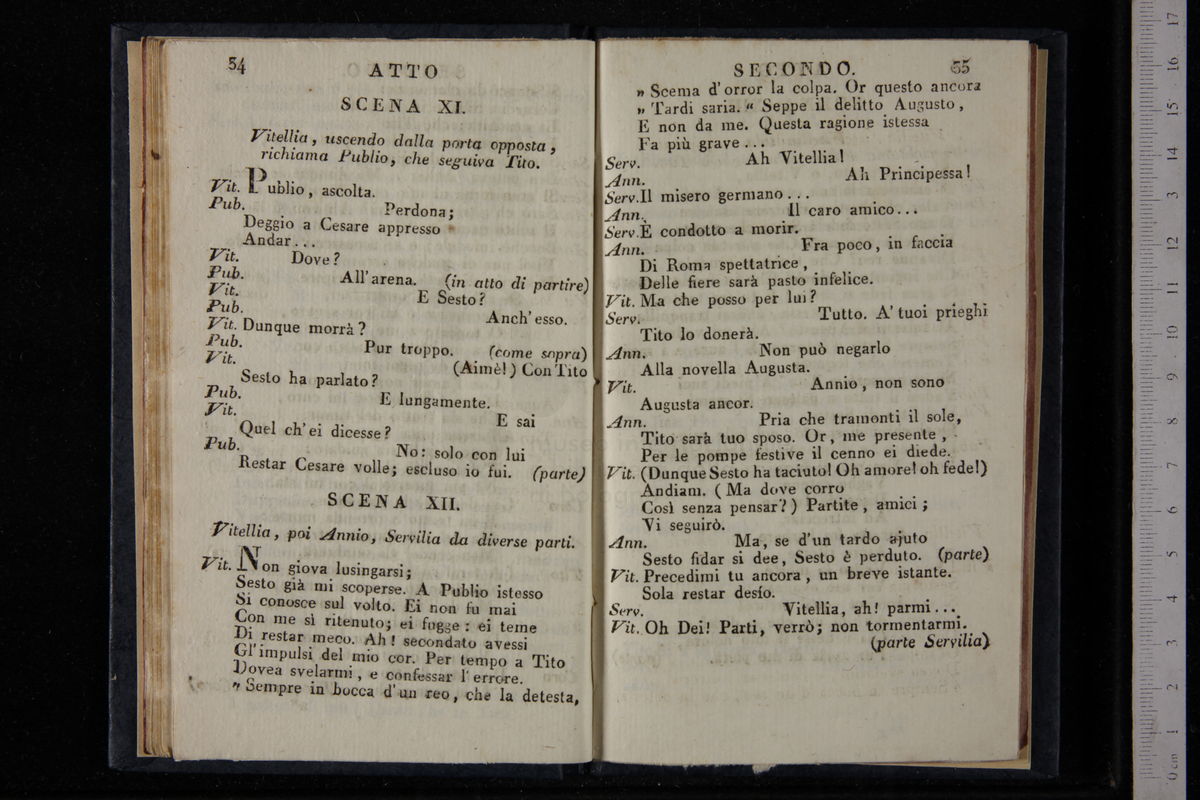 54 ATTO
SCENA XI.
Vitellia, uscendo dalla porta opposta,
richiama Publio, che seguiva Tito.
Vit. Publio, ascolta.
Pub. Perdona;
Deggio a Cesare appresso
Andar...
Vit. Dove?
Pub. All'arena. (in atto di partire)
Vit. E Sesto?
Pub. Anch'esso.
Vit. Dunque morrà?
Pub. Pur troppo. (come sopra)
Vit. (Aimè!) Con Tito
Sesto ha parlato?
Pub. E lungamente.
Vit. E sai
Quel ch'ei dicesse?
Pub. No: solo con lui
Restar Cesare volle; escluso io fui. (parte)
SCENA XII.
Vitellia, poi Annio, Servilia da diverse parti.
Vit. Non giova lusingarsi;
Sesto già mi scoperse. A Publio istesso
Si conosce sul volto. Ei non fu mai
Con me sì ritenuto; ei fugge: ei teme
Di restar meco. Ah! secondato avessi
Gl'impulsi del mio cor. Per tempo a Tito
Dovea svelarmi, e confessar l'errore.
„ Sempre in bocca d'un reo, che la detesta,
SECONDO. 55
„ Scema d'orror la colpa. Or questo ancora
„ Tardi saria. “ Seppe il delitto Augusto,
E non da me. Questa ragione istessa
Fa più grave...
Serv. Ah Vitellia!
Ann. Ah Principessa!
Serv. Il misero germano...
Ann. Il caro amico...
Serv. È condotto a morir.
Ann. Fra poco, in faccia
Di Roma spettatrice,
Delle fiere sarà pasto infelice.
Vit. Ma che posso per lui?
Serv. Tutto. A' tuoi prieghi
Tito lo donerà.
Ann. Non può negarlo
Alla novella Augusta.
Vit. Annio, non sono
Augusta ancor.
Ann. Pria che tramonti il sole,
Tito sarà tuo sposo. Or, me presente,
Per le pompe festive il cenno ei diede.
Vit. (Dunque Sesto ha taciuto! Oh amore! oh fede!)
Andiam. (Ma dove corro
Così senza pensar?) Partite, amici;
Vi seguirò.
Ann. Ma, se d'un tardo ajuto
Sesto fidar si dee, Sesto è perduto. (parte)
Vit. Precedimi tu ancora, un breve istante.
Sola restar desío.
Serv. Vitellia, ah! parmi...
Vit. Oh Dei! Parti, verrò; non tormentarmi.
(parte Servilia)
0 cm 1 2 3 4 5 6 7 8 9 10 11 12 13 14 15 16 17